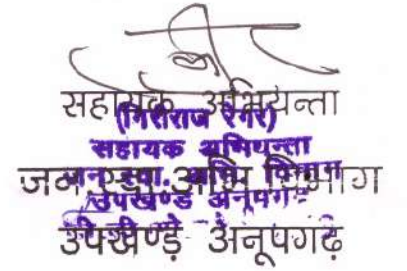 सहायक अभियन्ता
(गिरीराज रैगर)
सहायक अभियन्ता
जन स्वा. अभि. विभाग
जन स्वा. अभि. विभाग
उपखण्ड अनूपगढ
उपखण्ड अनूपगढ